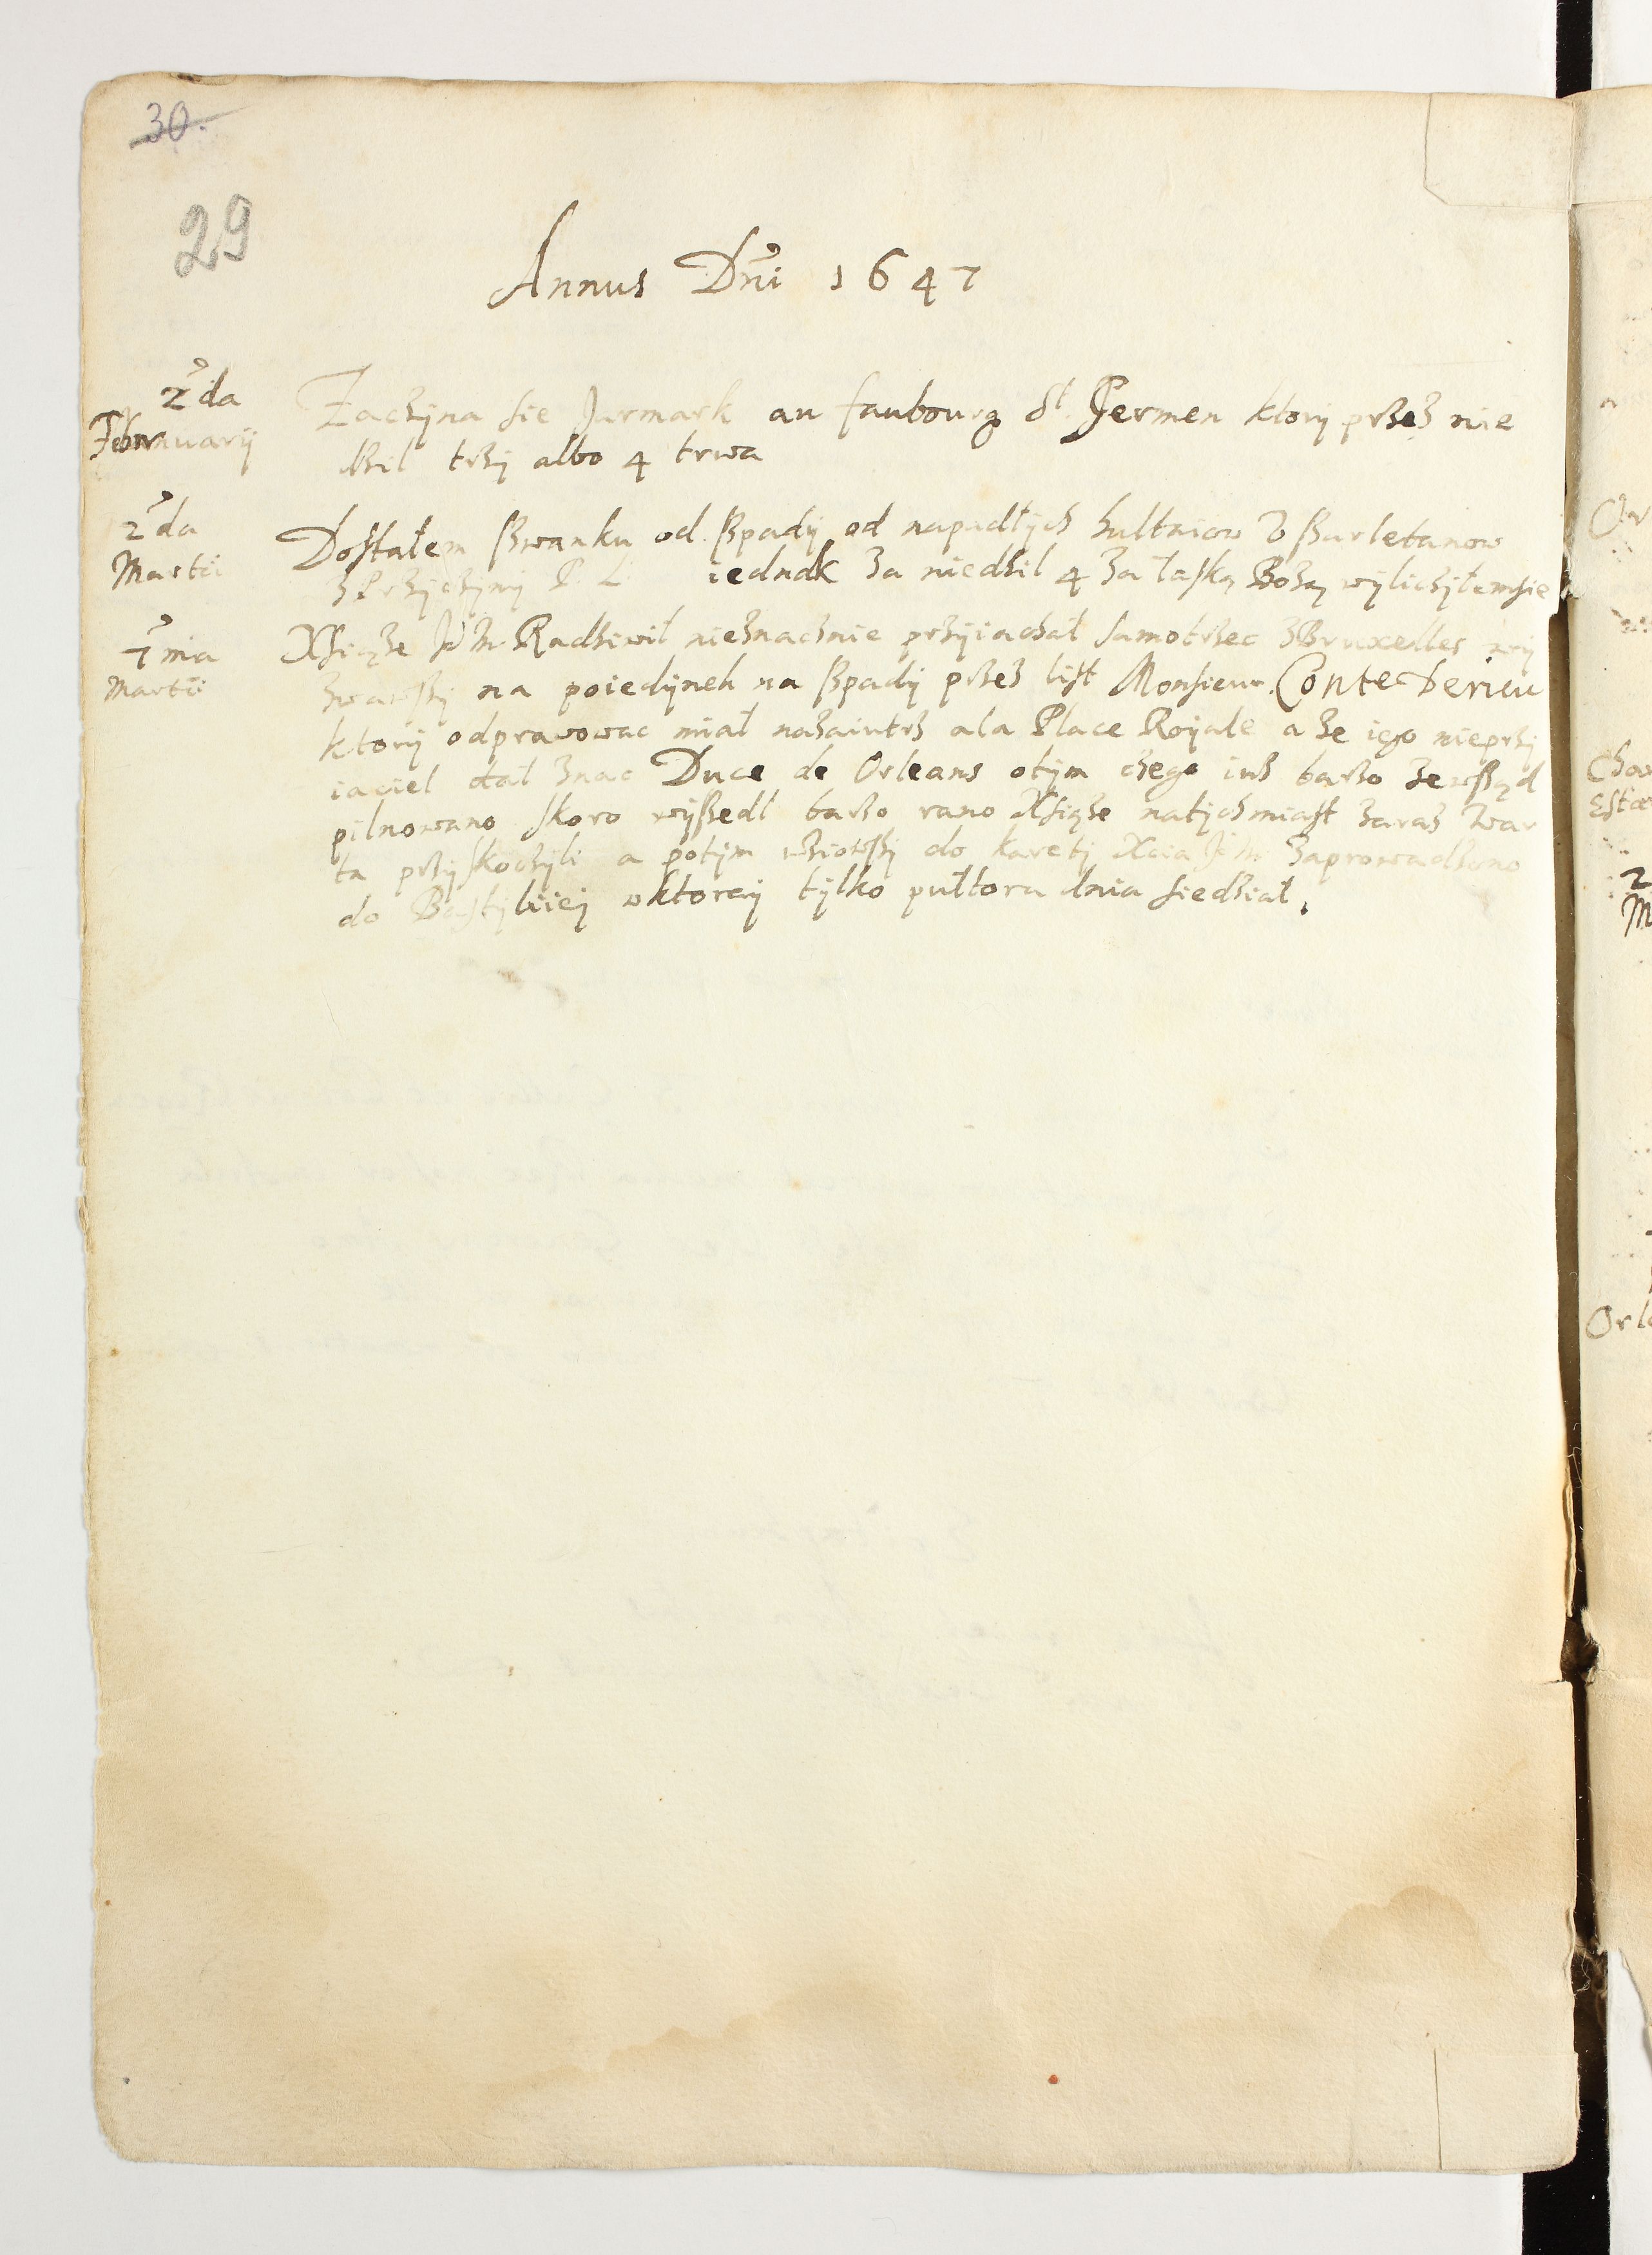 30.
29
Annus Dni 1647
2da Februarii
Zaczyna sie Jarmark au faubourg St. Jermen ktory przez nie
dzil trzy albo 4 trwa
2da Martii
Dostałem szwanku od szpady od napadłych hultaiow i szarletanow
z Przyczyny P. L. iednak za niedzil 4 za łaską Bożą wyliczyłemsie
7ma Martii
Xsiąże JM Radziwił nieznacznie przyiachał samotrzec z Bruxelles wy
zwawszy na poiedynek na szpady przez list Monsieur Conte de rieu
ktory odprawowac miał nazaiutrz a la Place Royale a że iego nieprzy
iaciel dał znac Duce de Orleans o tym czego iuż barzo zewsząd
pilnowano skoro wyszedł barzo rano Xsiąże natychmiast zaraz war
ta przyskoczyli a potym wziowszy do karety Xcia JM zaprowadzono
do Bastyliiey w ktorey tylko pułtora dnia siedział.
Chos
Orl